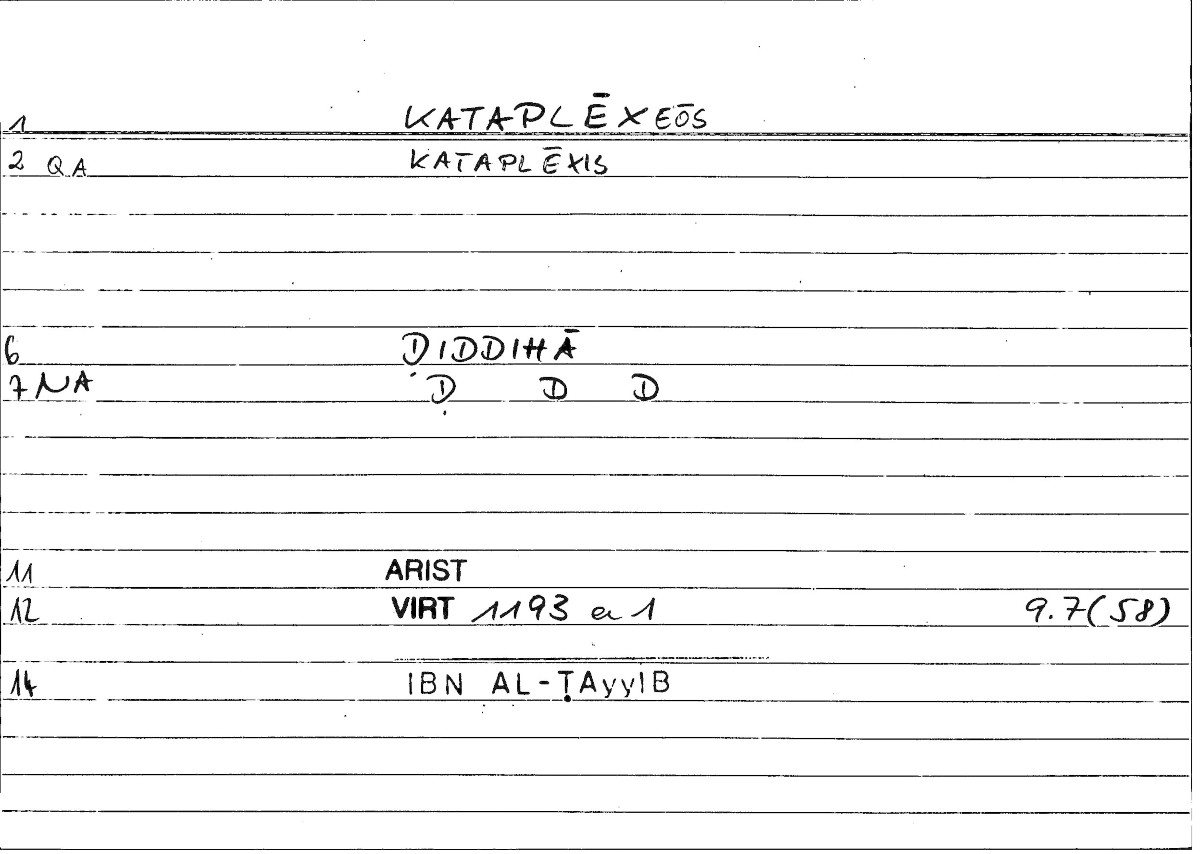 1 KATAPLĒXEŌS
2 QA KATAPLĒXIS
6 ḌIDDIHĀ
7 NA Ḍ D D
11 ARIST
12 VIRT 1193 a 1 9.7(58)
14 IBN AL-ṬAyyIB